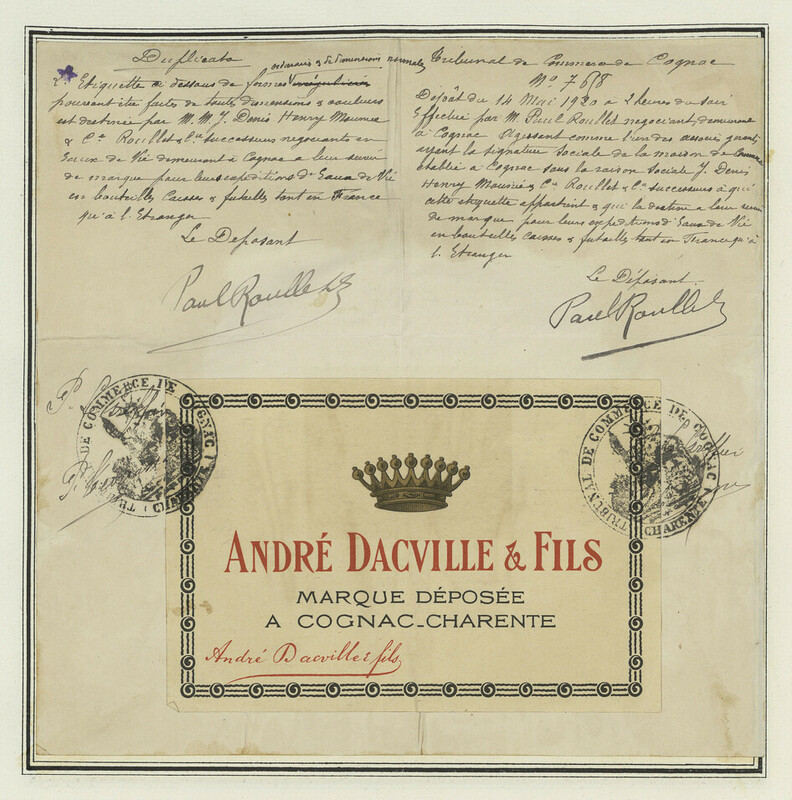 Duplicata
ordinaires & de dimensions normales
2° Etiquette ci dessous de formes irrégulières
pouvant être faites de toutes dimensions & couleurs
est destinée par M. M. J. Denis Henry Mounie
& Cie Roullet & Cie successeurs negociants en
Eaux de Vie demeurant à Cognac a leur servir
de marque pour leurs expéditions d'Eaux de Vie
en bouteilles caisses & futailles tant en France
qu'à l'Etranger
Le Deposant
Paul Roullet
Tribunal de Commerce de Cognac
No 768
Dépôt du 14 Mai 1920 a 2 heures du soir
Effectué par M. Paul Roullet negociant, demeurant
à Cognac Agissant comme l'un des associés gérants
ayant la signature Sociale de la maison de Commerce
établie a Cognac sous la raison Sociale J. Denis
Henry Mounie & Cie Roullet & Cie successeurs à qui
cette etiquette appartient & qui la destine a leur servir
de marque pour leurs expeditions d'Eaux de Vie
en bouteilles caisses & futailles tant en France qu'à
l'Etranger
Le Déposant
Paul Roullet
TRIBUNAL DE COMMERCE DE COGNAC
CHARENTE
TRIBUNAL DE COMMERCE DE COGNAC
CHARENTE
ANDRÉ DACVILLE & FILS
MARQUE DÉPOSÉE
A COGNAC-CHARENTE
André Dacville & fils